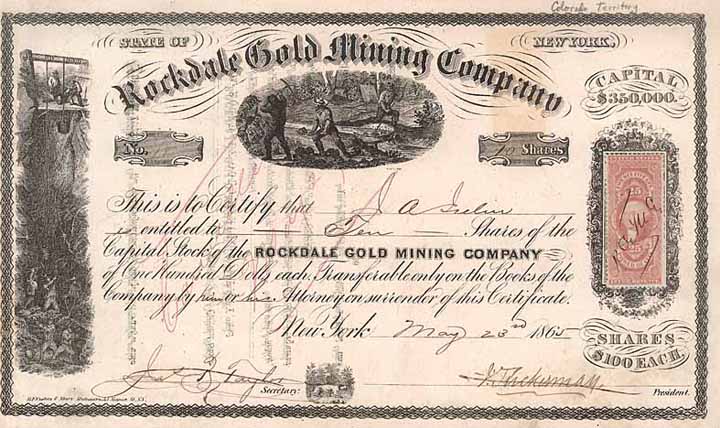 Colorado Territory
STATE OF NEW YORK,
Rockdale Gold Mining Company
CAPITAL
$350,000.
No. 10 Shares
This is to Certify that J A Iselin
is entitled to Ten Shares of the
Capital Stock of the ROCKDALE GOLD MINING COMPANY
of One Hundred Dolls. each. Transferable only on the Books of the
Company by him or his Attorney on surrender of this Certificate.
New York May 23rd 1865
SHARES
$100 EACH.
Jas Taylor Secretary.
President.
25